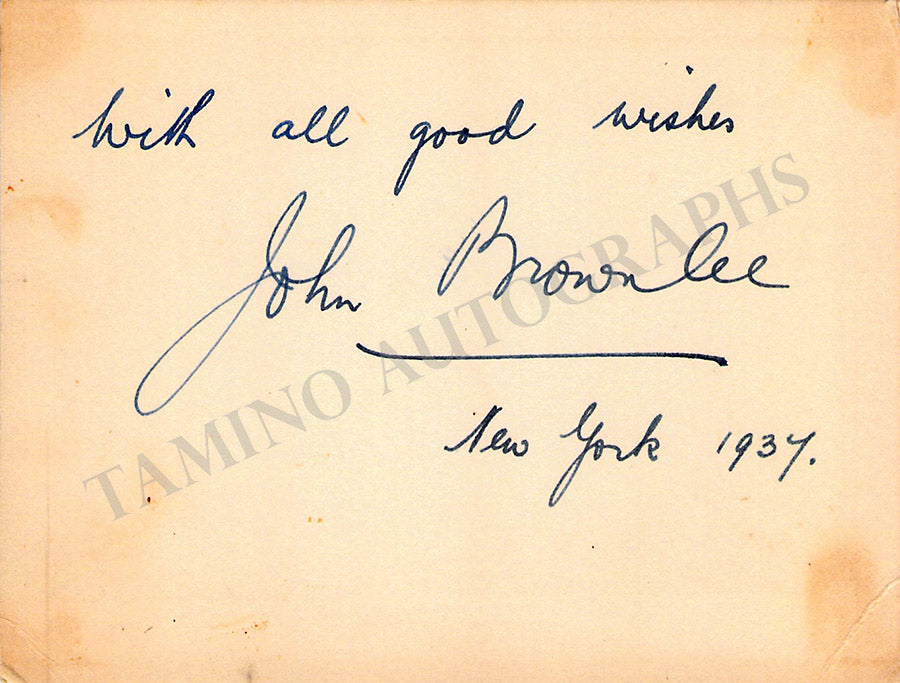 With all good wishes
John Brownlee
New York 1937.
TAMINO AUTOGRAPHS